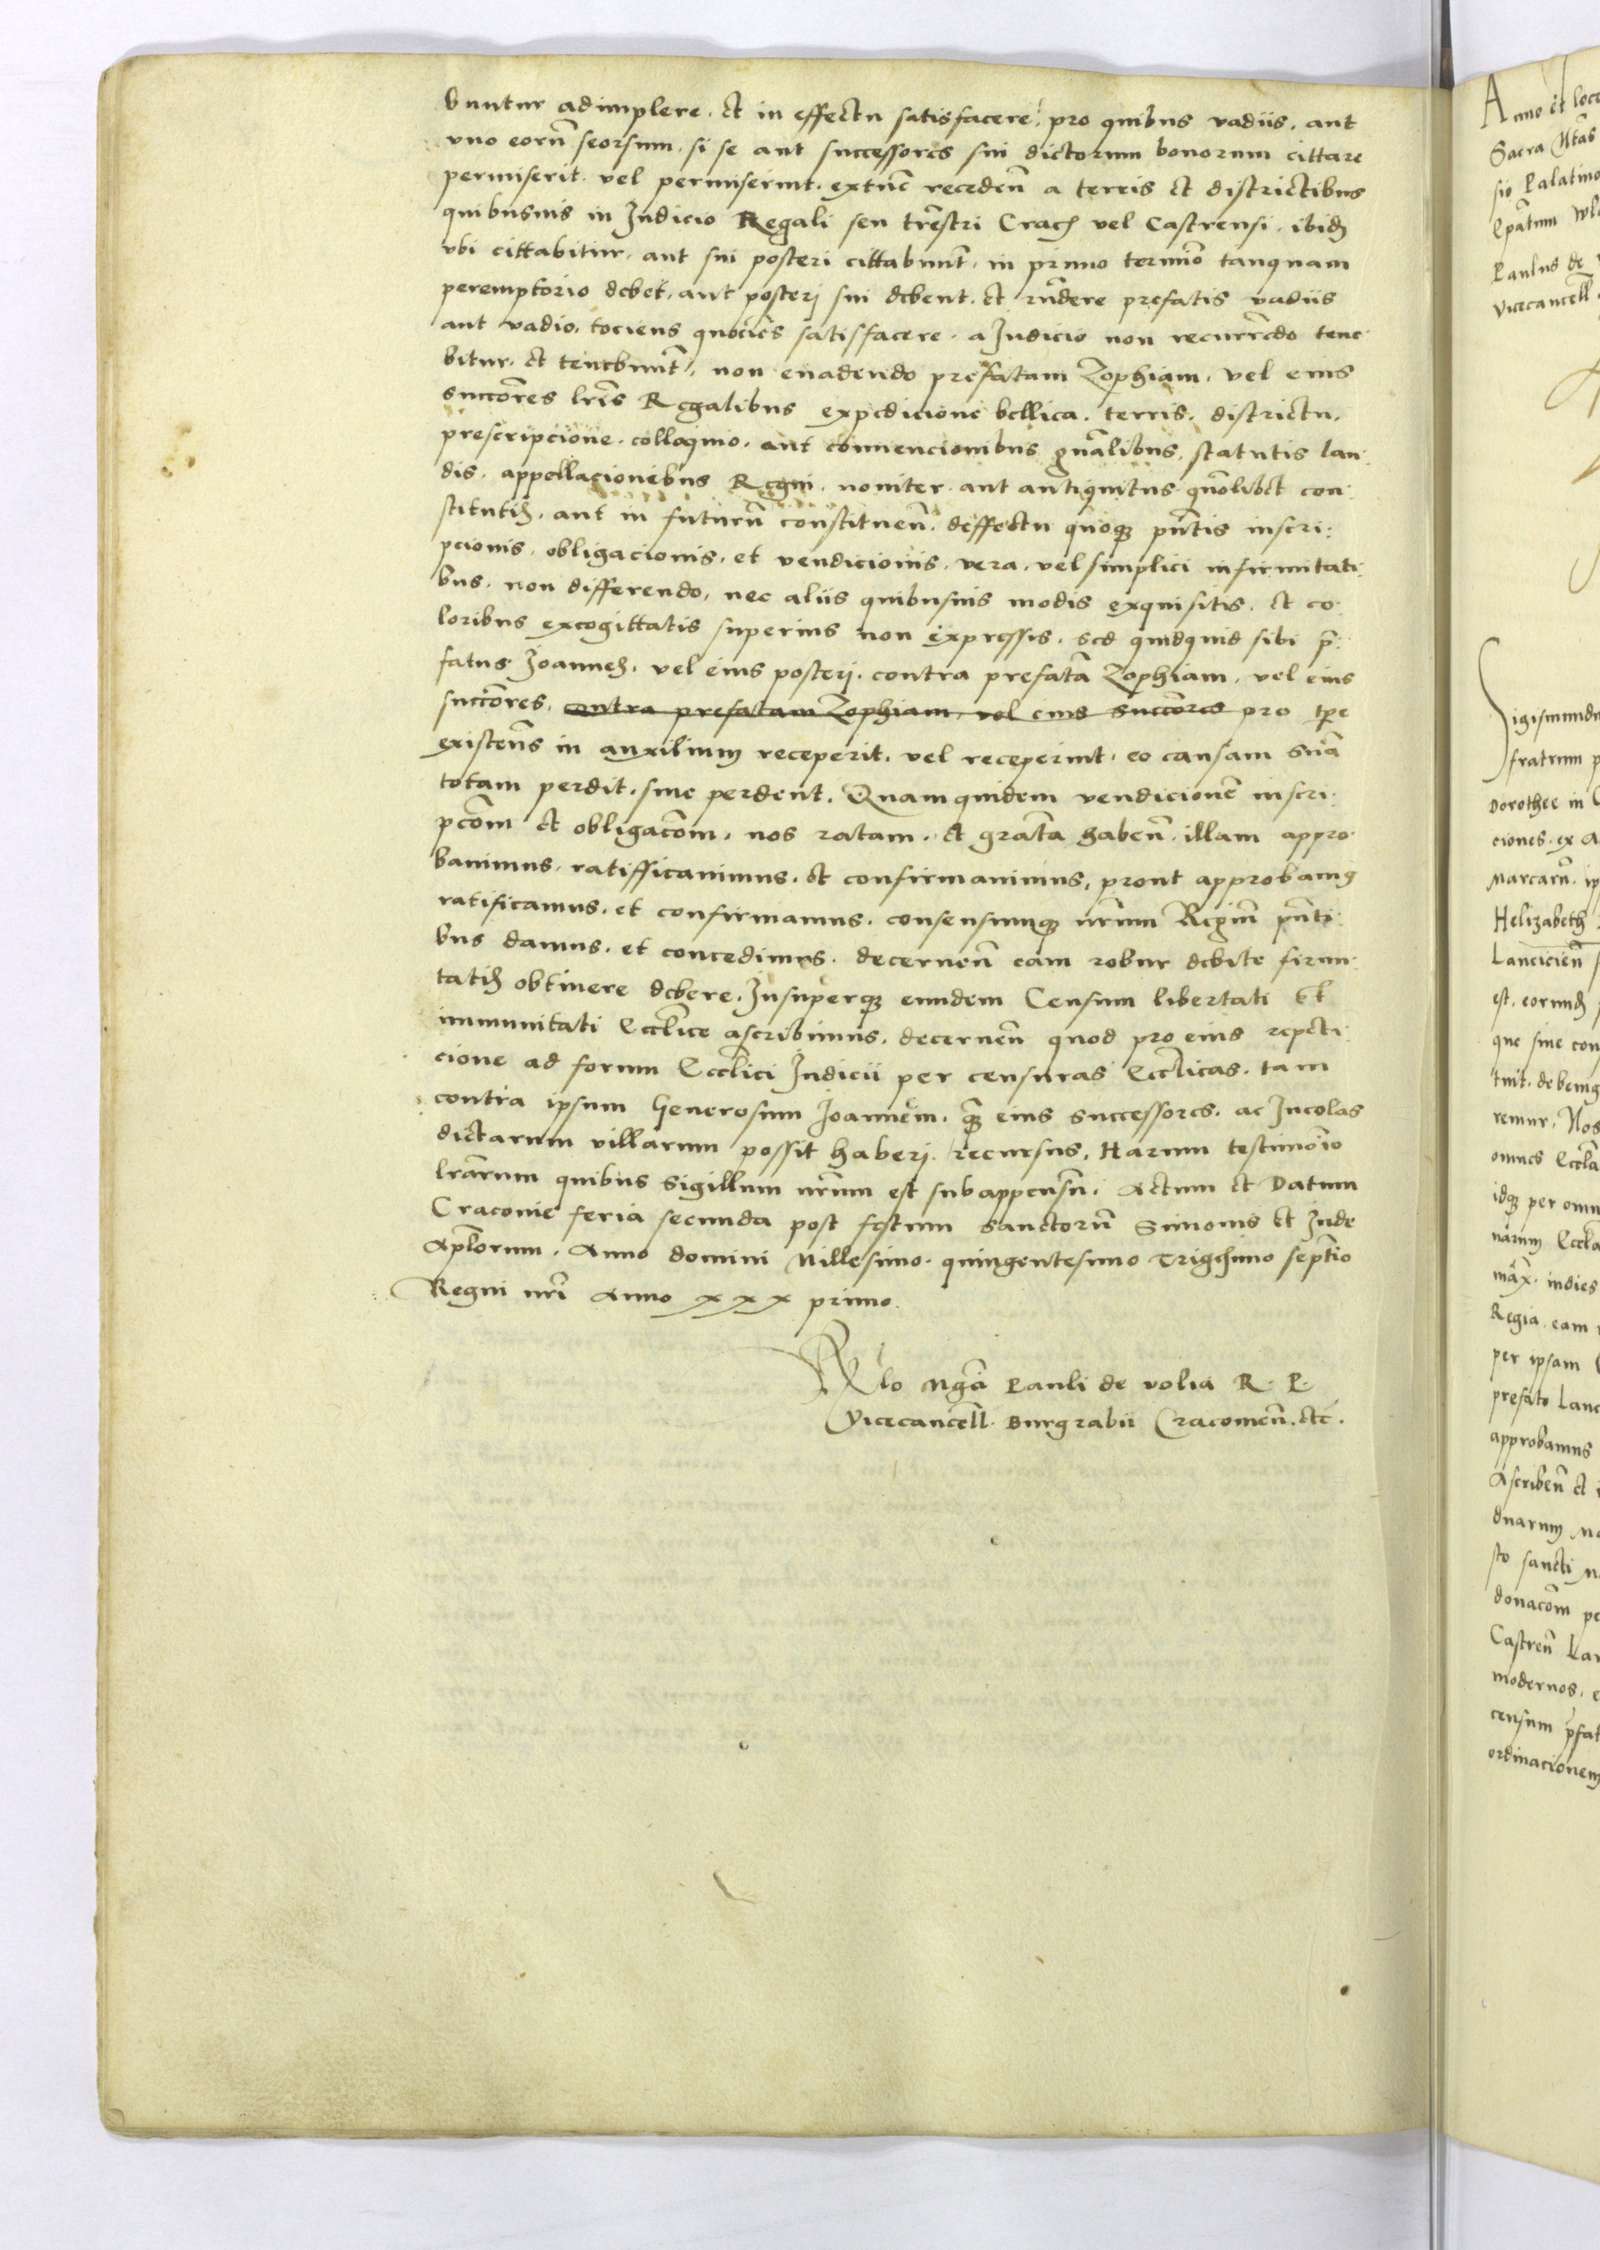 buntur adimplere. et in effectu satisfacere, pro quibus vadiis. aut
vno eorũ seorsum. si se aut successores sui dictorum bonorum cittare
permiserit. vel permiserint. extũc recedeñ a terris et districtibus
quibusuis in Iudicio Regali seu trẽstri Crach vel Castrensi. ibid
vbi cittabitur. aut sui posteri cittabunt̃. in primo termĩo tanquam
peremptorio debet. aut posterj sui debent. et rñdere prefatis vadiis
aut vadio. tociens quociẽs satisfacere. a Iudicio non recurrẽdo tene
bitur. et tenebunt̃. non euadendo prefatam Zophiam. vel eius
succõres lrĩs Regalibus expedicione bellica. terris. districtu.
prescripcione. colloquio. aut conuencionibus gñalibus. statutis lau
dis. appellacionibus Regni. nouiter aut antiquitus quõlibet con
stitutis. aut in futurũ constitueñ. deffectu quoq pñtis inscri:
pcionis. obligacionis. et vendicionis. vera. vel simplici infirmitati
bus. non differendo, nec aliis quibusuis modis exquisitis. et co
loribus excogittatis superius non expressis. sed quidquid sibi p̃
fatus Ioannes. vel eius posterj. contra prefatã Zophiam. vel eius
succõres. contra prefatam Zophiam, vel eius succõres pro tp̃e
existeñs in auxilium receperit. vel receperint. eo causam suã
totam perdit. siue perdent. Quamquidem vendicionẽ inscri
pcõm et obligacõm. nos ratam. et gratã habeñ. illam appro
bauimus. ratifficauimus. et confirmauimus, prout approbamus
ratificamus. et confirmamus. consensumq nr̃um Regiũ pñti
bus damus. et concedimus. decerneñ eam robur debite firmi
tatis obtinere debere. Insuperq eundem Censum libertati et
immunitati Eccl̃ice ascribimus. decerneñ quod pro eius repeti
cione ad forum Eccl̃ici Iudicii per censuras Eccl̃icas. tam
contra ipsum Generosum Ioannem. q̃ eius successores. ac Incolas
dictarum villarum possit haberj recursus. Harum testimoĩo
lrãrum quibus Sigillum nr̃um est subappensũ. Actum et Datum
Cracouie feria secunda post festum sanctorũ Simonis et Iude
Apl̃orum. Anno domini Millesimo. quingentesimo Trigesimo sept̃io
Regni nr̃i Anno xxx primo.
Rlo Mgcĩ Pauli de volia R. P.
Vicecancell. Burgrabii Cracouieñ. etc̃.
Anno et loc
Sacra Mtãs
sio Palatino
Epãtum Wl
Paulus de
Vicecancell
Sigismundu
fratrum p
Dorothee in
ciones. ex A
Marcarũ. ip
Helizabeth
Lancicieñ
est. eorund
que siue con
tuit. debemus
remur. Nos
omnes Eccl̃a
idq per omn
narum Eccl̃a
max. indies
Regia. eam
per ipsam
prefato Lanc
approbamus
Ascribeñ et
duarum
sto sancti
donacõm pe
Castreñ Lan
modernos.
censum p̃fat
ordinacionem